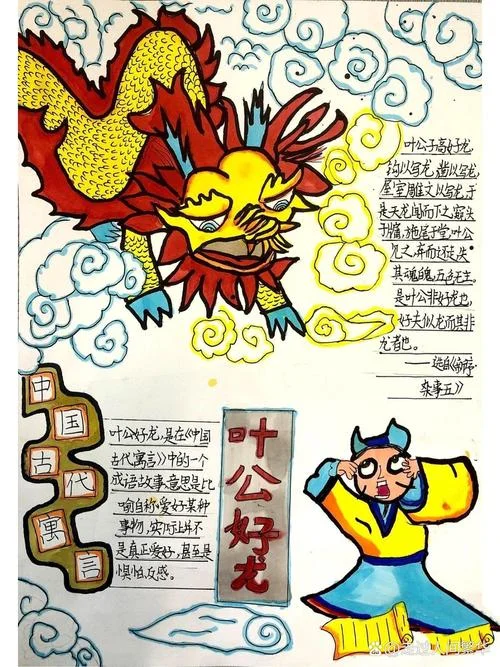 叶公子高好龙,
钩以写龙,凿以写龙,
屋室雕文以写龙,于
是天龙闻而下之,窥头
于牖,施尾于堂,叶公
见之,弃而还走,失
其魂魄,五色无主。
是叶公非好龙也,
好夫似龙而其非
龙者也。
——选自《新序·
杂事五》
中国古代寓言
叶公好龙,是在《中国
古代寓言》中的一个
成语故事,意思是比
喻自称爱好某种
事物,实际上并不
是真正爱好,甚至是
惧怕、反感。
叶公好龙